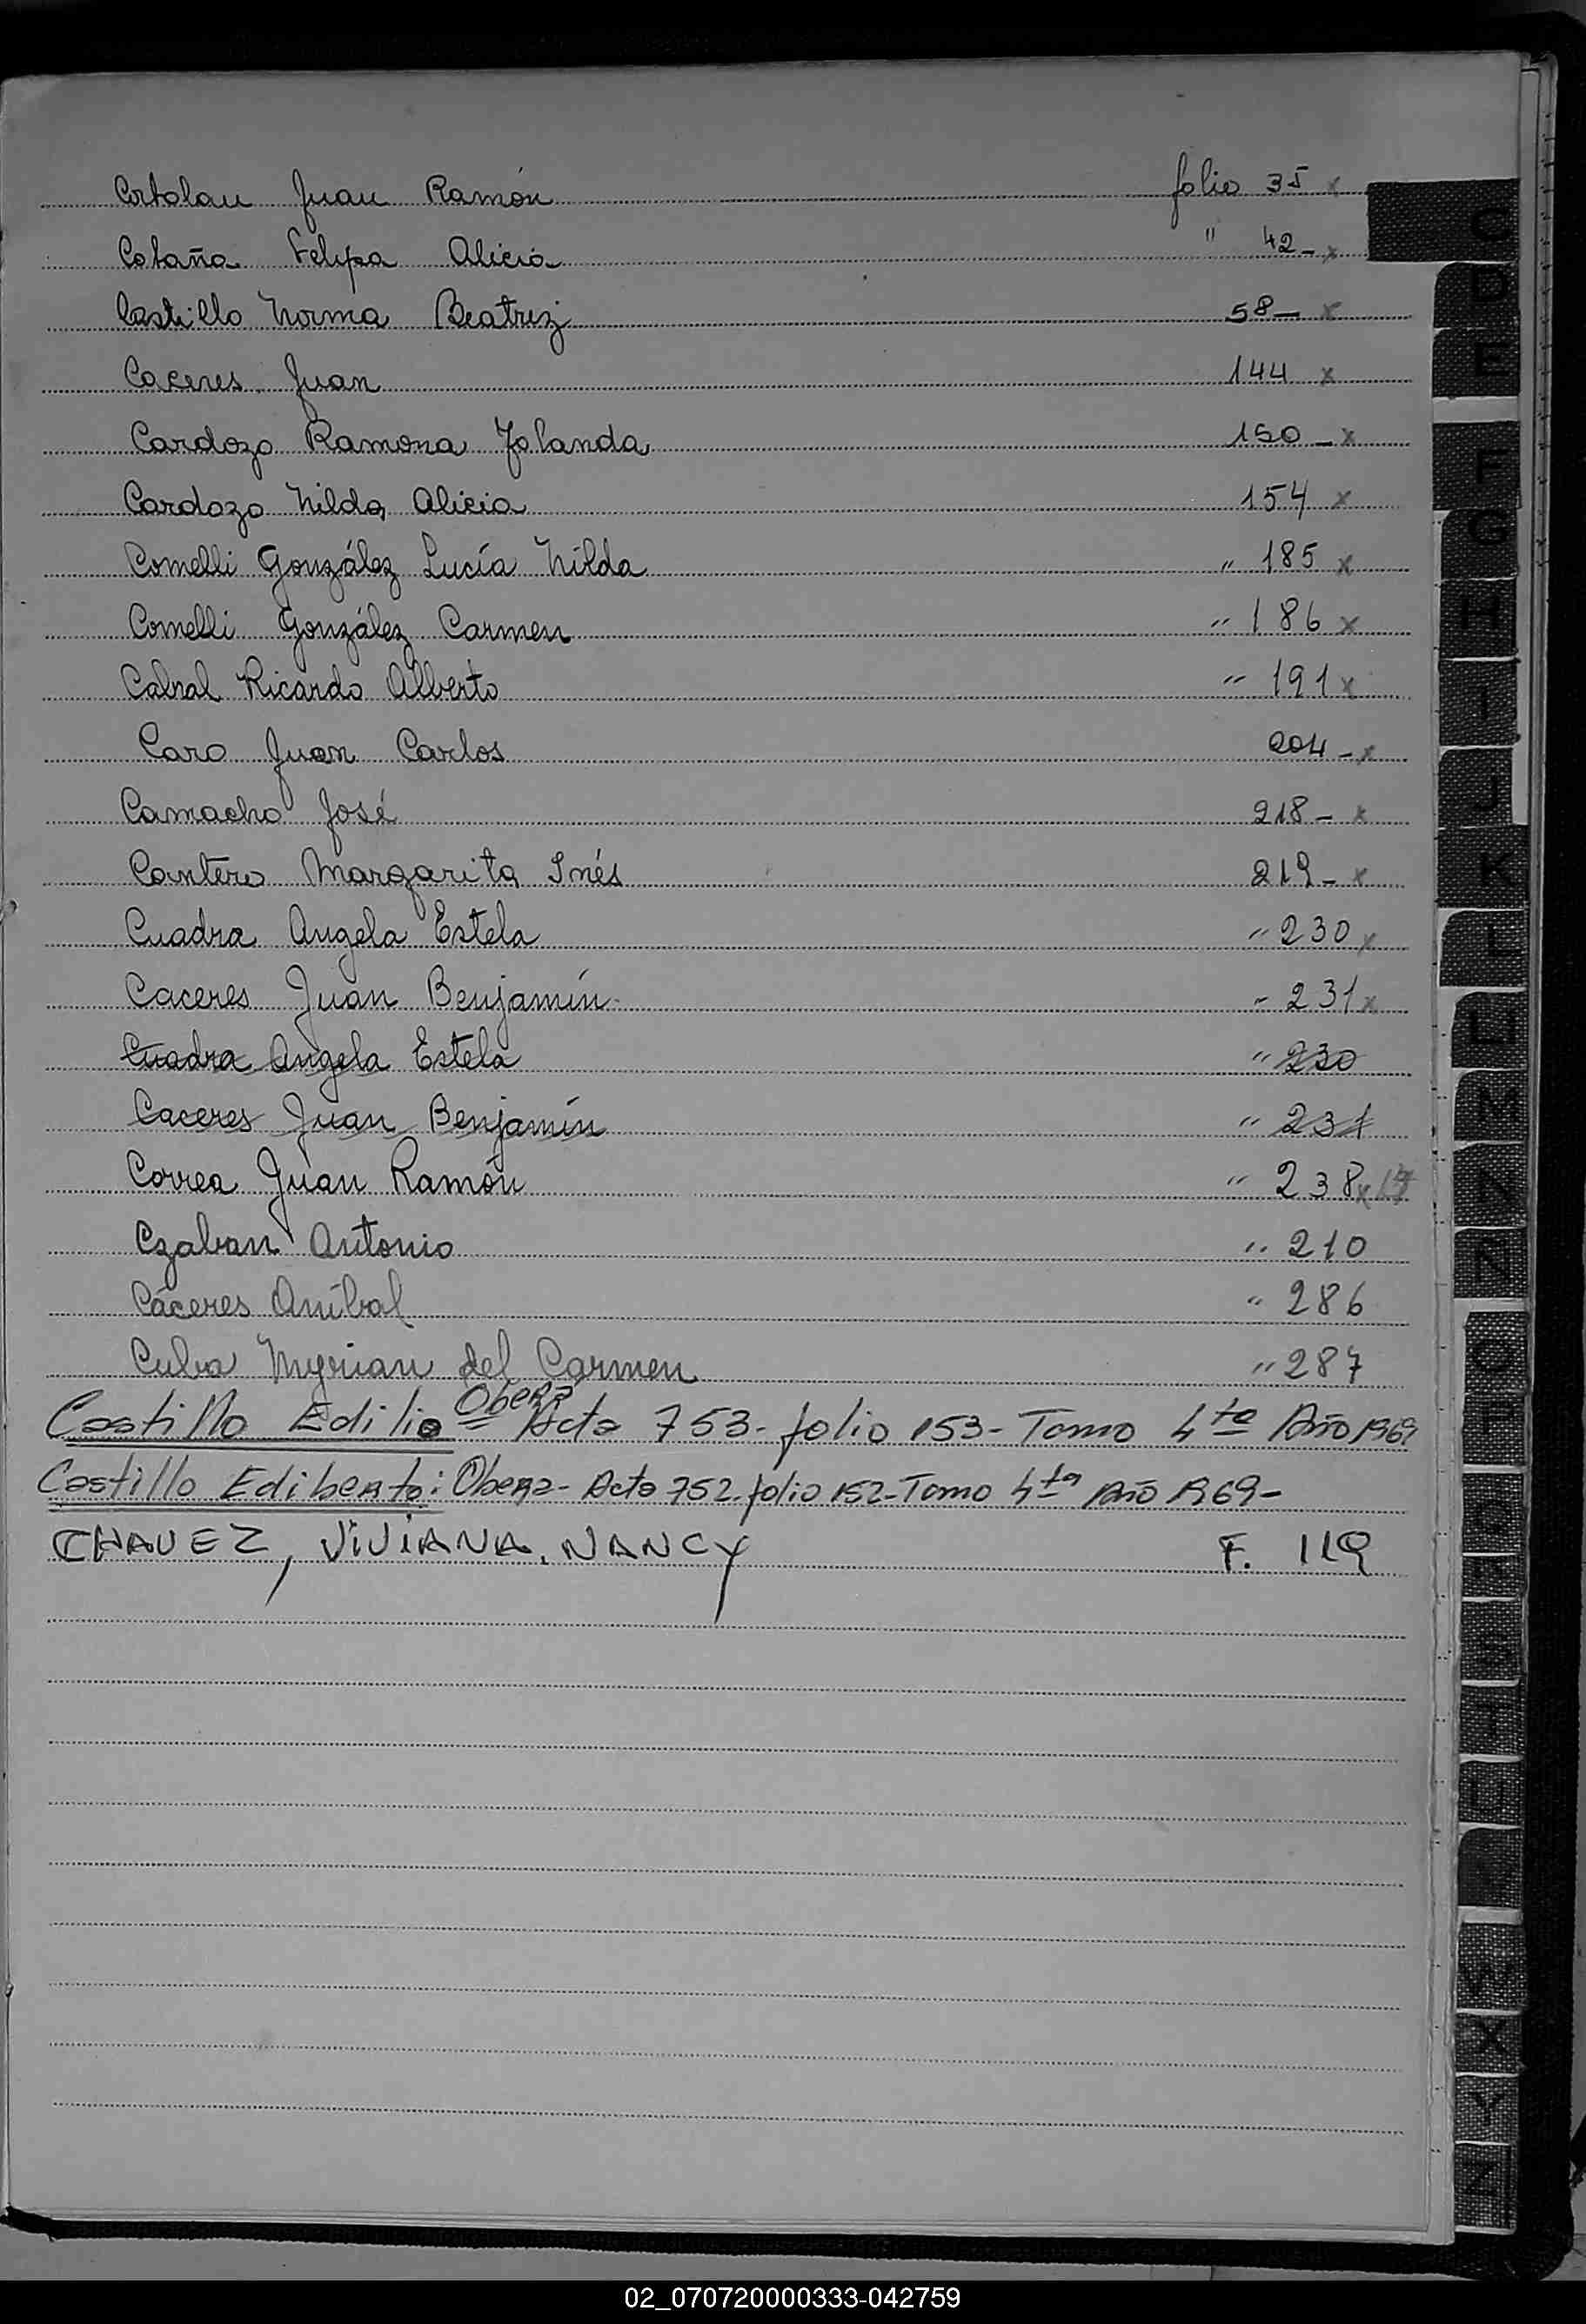 Cortolan Juan Ramón folio 35 x
Cotaña Felipa Alicia " 42- x
Castillo Norma Beatriz 58- x
Caceres Juan 144 x
Cardozo Ramona Yolanda 150- x
Cardozo Nilda Alicia 154 x
Comelli González Lucía Nilda " 185 x
Comelli González Carmen " 186 x
Cabral Ricardo Alberto " 191 x
Caro Juan Carlos 204- x
Camacho José 218- x
Cantero Margarita Inés 219- x
Cuadra Angela Estela " 230 x
Caceres Juan Benjamín " 231 x
Cuadra Angela Estela " 230
Caceres Juan Benjamín " 231
Correa Juan Ramón " 238 x
Czaban Antonio " 210
Cáceres Aníbal " 286
Cuba Myrian del Carmen " 287
Castillo Edilio Obera Acta 753- folio 153- Tomo 4to Año 1969
Castillo Ediberto: Obera- Acta 752. folio 152- Tomo 4to Año 1969-
CHAVEZ, ViViANA. NANCY F. 119
C
D
E
F
G
H
I
J
K
L
LL
M
N
Ñ
O
P
Q
R
S
T
U
W
X
Y
Z
02_070720000333-042759